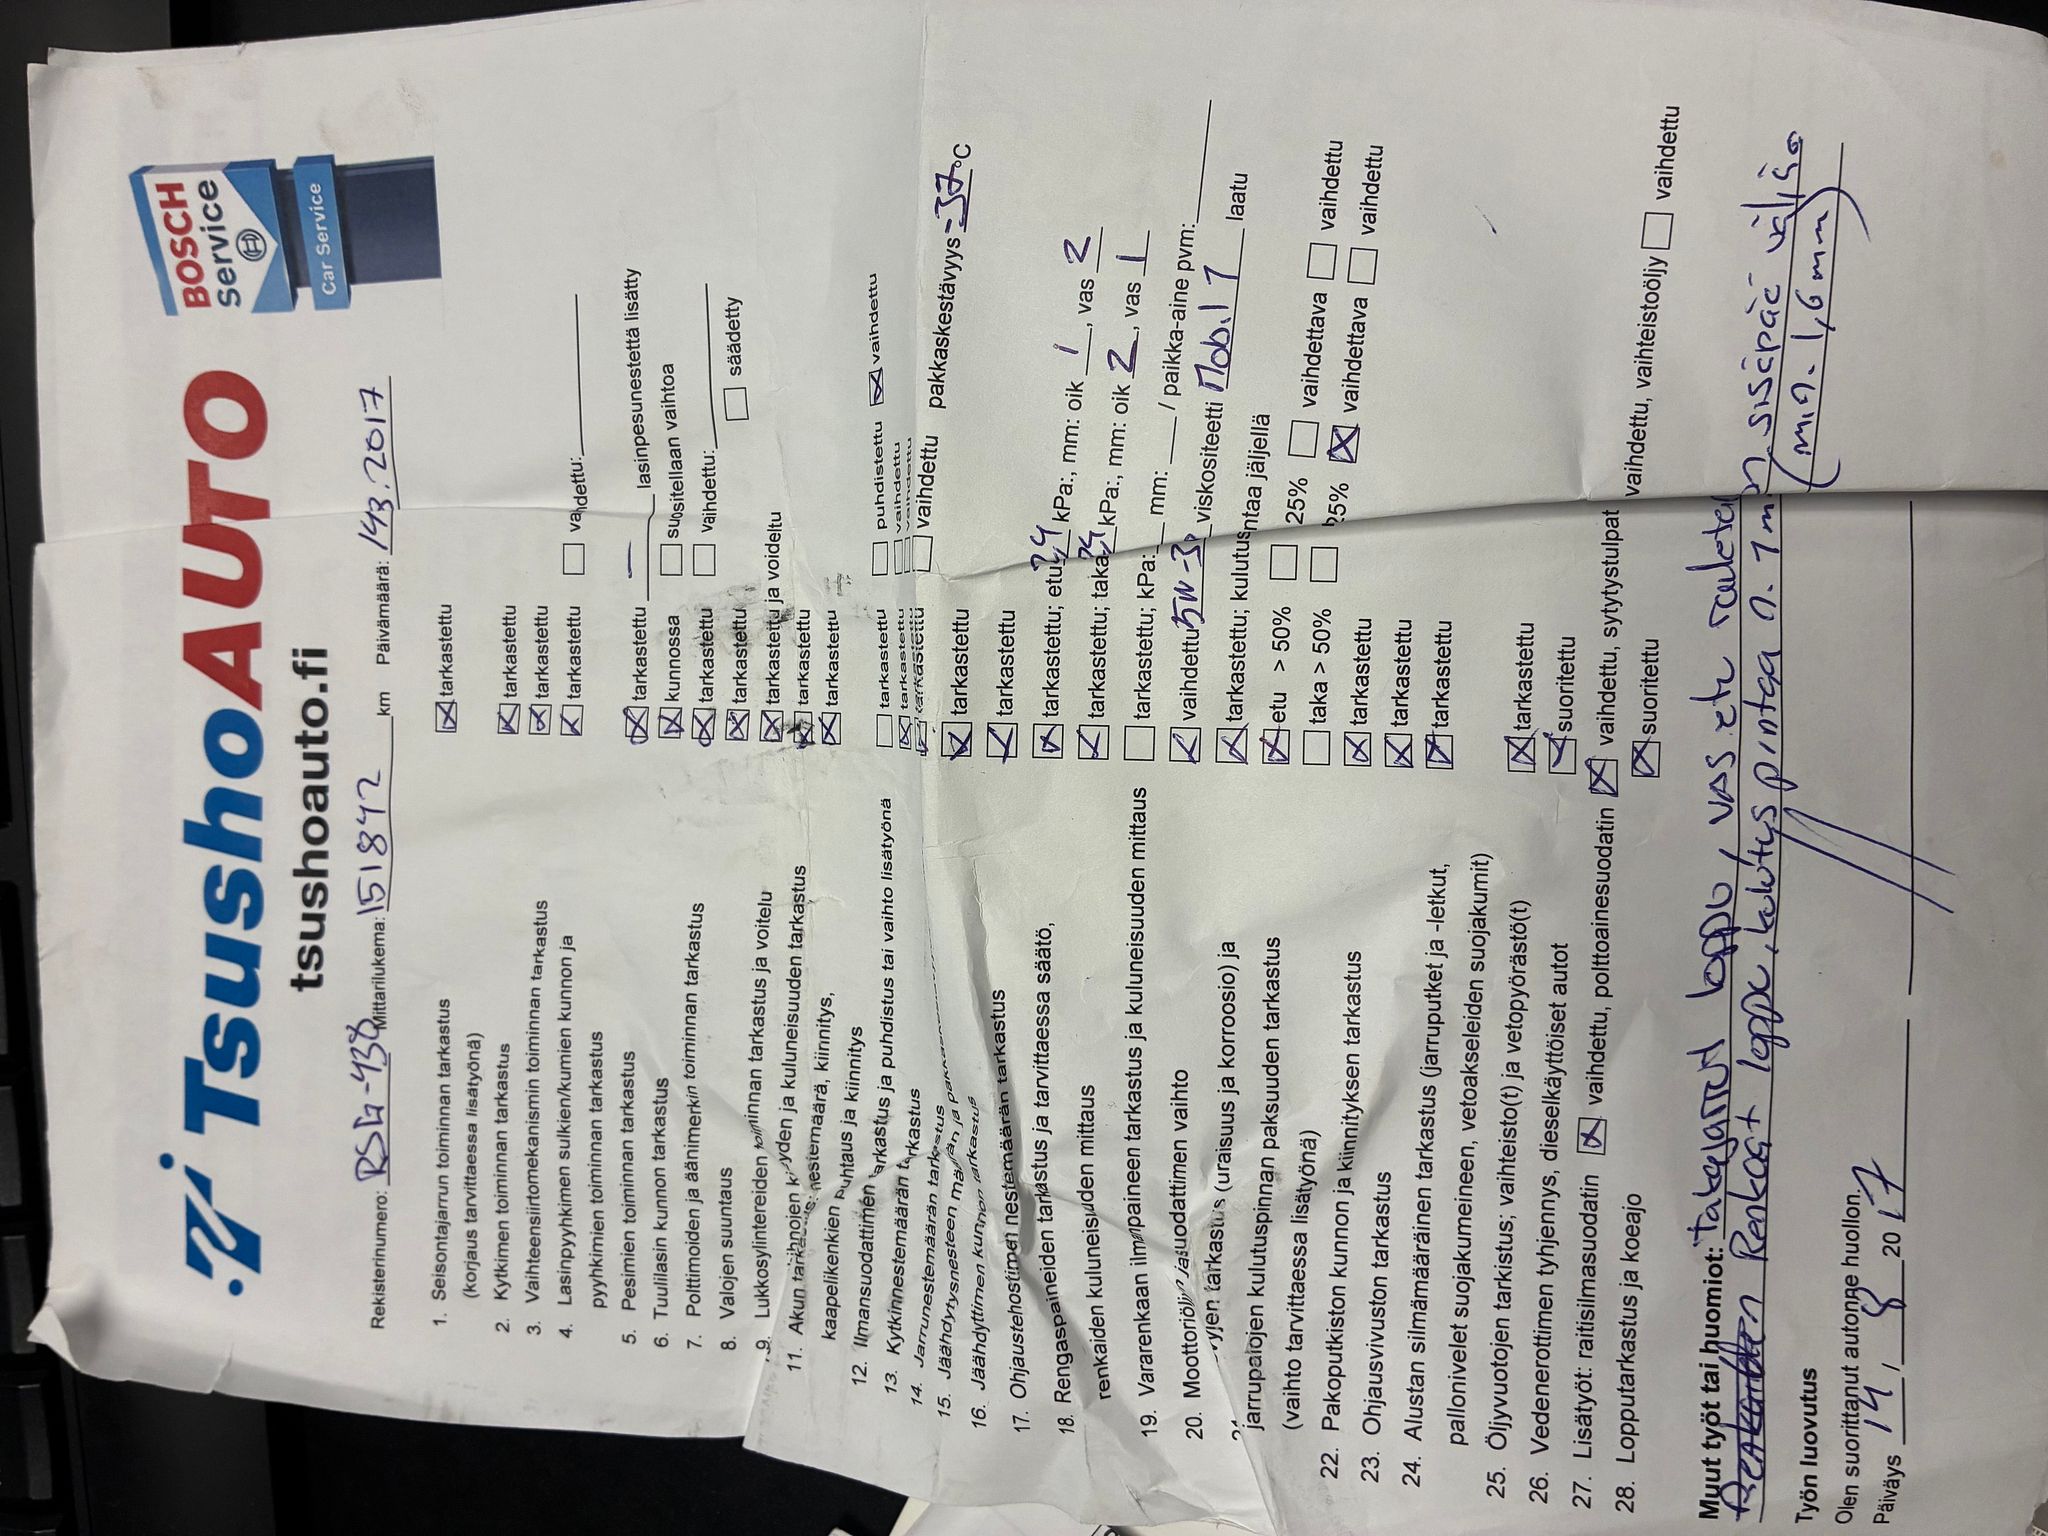 TsushoAUTO
tsushoauto.fi
BOSCH
Service
Car Service
Rekisterinumero: RSG-438 Mittarilukema: 151842 km Päivämäärä: 14.3.2017
1. Seisontajarrun toiminnan tarkastus ☒ tarkastettu
(korjaus tarvittaessa lisätyönä)
2. Kytkimen toiminnan tarkastus ☒ tarkastettu
3. Vaihteensiirtomekanismin toiminnan tarkastus ☒ tarkastettu
4. Lasinpyyhkimen sulkien/kumien kunnon ja ☒ tarkastettu ☐ vaihdettu:
pyyhkimien toiminnan tarkastus
5. Pesimien toiminnan tarkastus ☒ tarkastettu — lasinpesunestettä lisätty
6. Tuulilasin kunnon tarkastus ☒ kunnossa ☐ suositellaan vaihtoa
7. Polttimoiden ja äänimerkin toiminnan tarkastus ☒ tarkastettu ☐ vaihdettu:
8. Valojen suuntaus ☒ tarkastettu ☐ säädetty
9. Lukkosylintereiden toiminnan tarkastus ja voitelu ☒ tarkastettu ja voideltu
☒ tarkastettu
11. Akun tarkastus: nestemäärä, kiinnitys, ☒ tarkastettu
kaapelikenkien puhtaus ja kiinnitys
12. Ilmansuodattimen tarkastus ja puhdistus tai vaihto lisätyönä ☐ tarkastettu ☐ puhdistettu ☒ vaihdettu
13. Kytkinnestemäärän tarkastus ☒ tarkastettu ☐ vaihdettu
14. Jarrunestemäärän tarkastus ☒ tarkastettu ☐ vaihdettu
15. Jäähdytysnesteen määrän ja ☒ tarkastettu ☐ vaihdettu pakkaskestävyys -37°C
16. Jäähdyttimen kunnon tarkastus
17. Ohjaustehostimen nestemäärän tarkastus ☒ tarkastettu
18. Rengaspaineiden tarkastus ja tarvittaessa säätö, ☒ tarkastettu; etu 2,4 kPa:, mm: oik 1, vas 2
renkaiden kuluneisuuden mittaus ☒ tarkastettu; taka 2,4 kPa:, mm: oik 2, vas 1
19. Vararenkaan ilmanpaineen tarkastus ja kuluneisuuden mittaus ☐ tarkastettu; kPa: mm: / paikka-aine pvm:
20. Moottoriöljyn ja suodattimen vaihto ☒ vaihdettu 5W-30 viskositeetti Mobil 1 laatu
tarkastus (uraisuus ja korroosio) ja ☒ tarkastettu; kulutuspintaa jäljellä
jarrupalojen kulutuspinnan paksuuden tarkastus ☒ etu > 50% ☐ 25% ☐ vaihdettava ☐ vaihdettu
(vaihto tarvittaessa lisätyönä) ☐ taka > 50% ☐ 25% ☒ vaihdettava ☐ vaihdettu
22. Pakoputkiston kunnon ja kiinnityksen tarkastus ☒ tarkastettu
23. Ohjausvivuston tarkastus ☒ tarkastettu
24. Alustan silmämääräinen tarkastus (jarruputket ja -letkut, ☒ tarkastettu
pallonivelet suojakumeineen, vetoakseleiden suojakumit)
25. Öljyvuotojen tarkistus; vaihteisto(t) ja vetopyörästö(t) ☒ tarkastettu
26. Vedenerottimen tyhjennys, dieselkäyttöiset autot ☒ suoritettu
27. Lisätyöt: raitisilmasuodatin ☒ vaihdettu, polttoainesuodatin ☒ vaihdettu, sytytystulpat vaihdettu, vaihteistoöljy ☐ vaihdettu
28. Lopputarkastus ja koeajo ☒ suoritettu
Muut työt tai huomiot: Takajarrut loppu, vas etu sisäpää väljä
Renkaat loppu, kulutus pintaa n. 1mm (min. 1,6mm)
Työn luovutus
Olen suorittanut autonne huollon.
Päiväys 14, 8 20 17